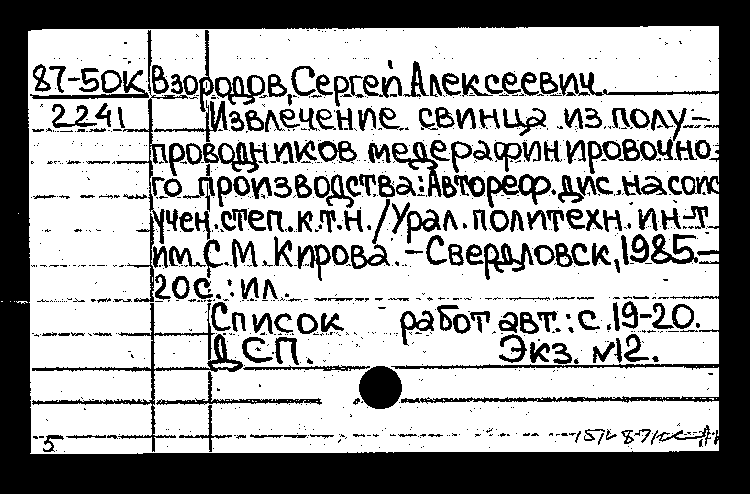 87-50К Взородов, Сергей Алексеевич.
2241 Извлечение свинца из полу-
проводников медерафинировочно-
го производства: Автореф. дис. на соис
учен. степ. к.т.н. / Урал. политехн. ин-т
им. С.М. Кирова. - Свердловск, 1985.-
20с.: ил.
Список работ авт.: с. 19-20.
ДСП. Экз. N12.
5